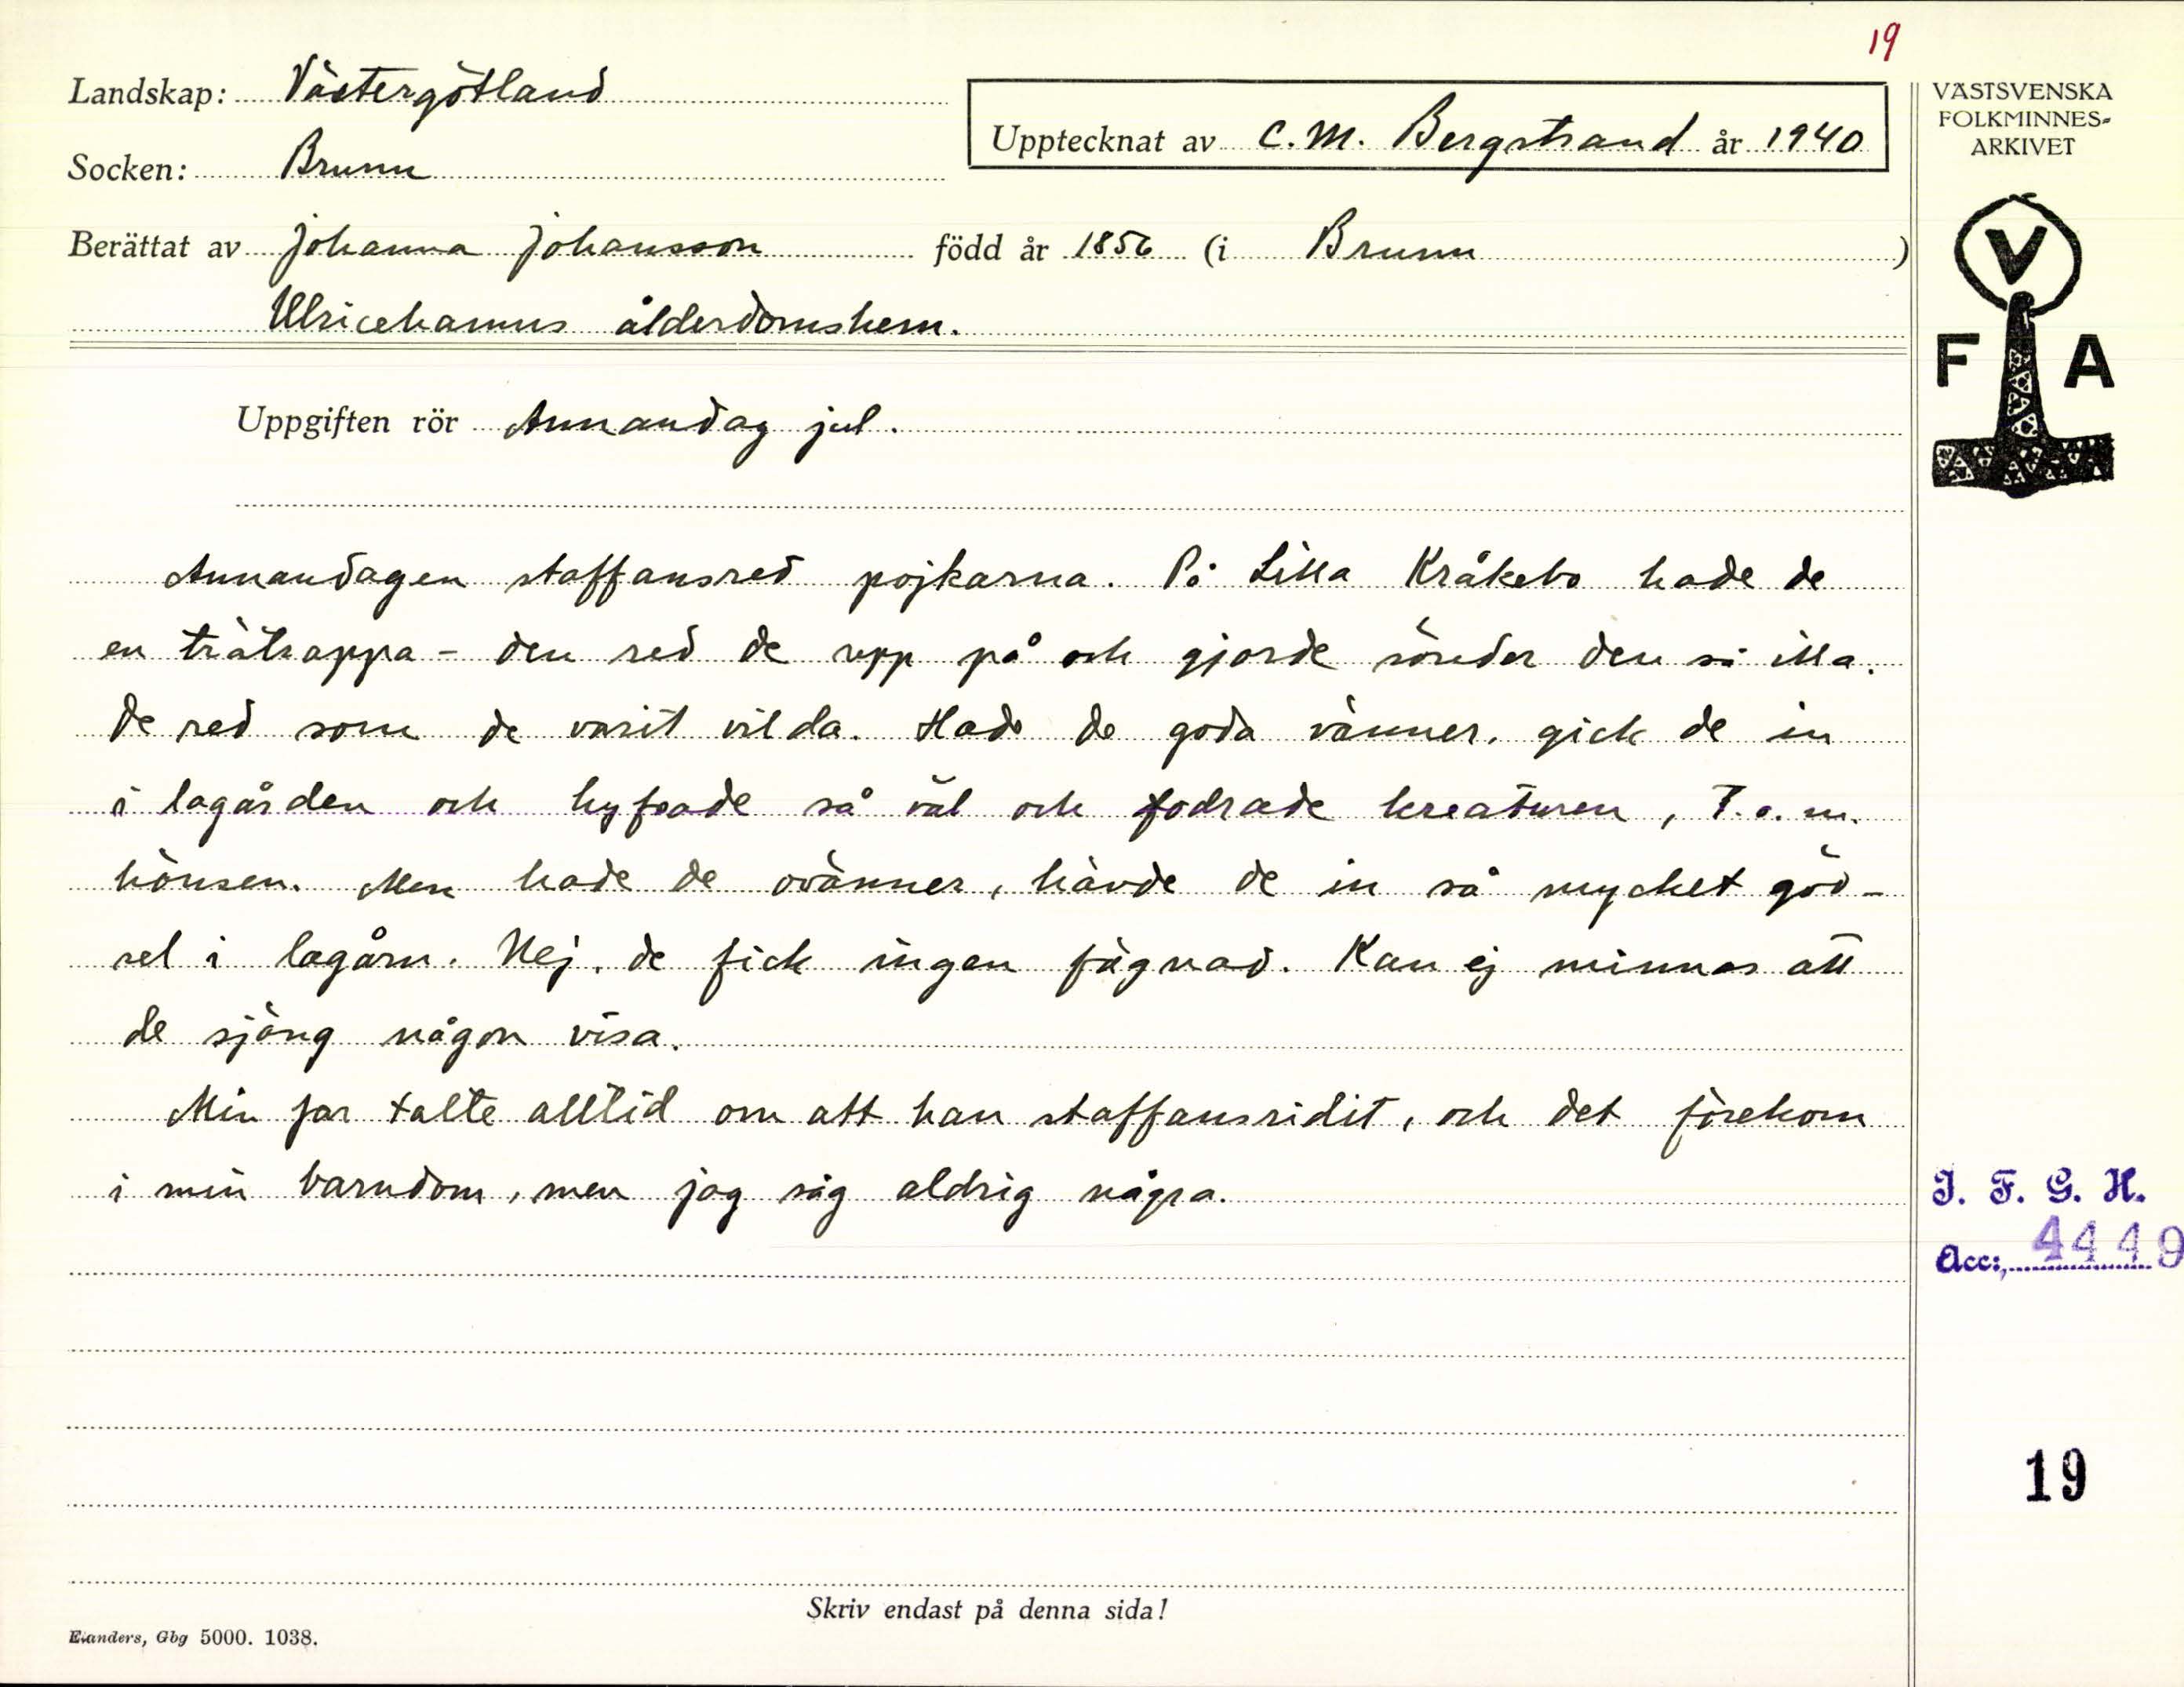 19
Landskap: Västergötland
VÄSTSVENSKA
FOLKMINNES-
ARKIVET
Upptecknat av C. M. Bergstrand år 1940
Socken: Brunn
Berättat av Johanna Johansson född år 1856 (i Brunn )
Ulricehamns ålderdomshem.
V
F A
Uppgiften rör Annandag jul.
Annandagen staffansred pojkarna. På Lilla Kråkebo hade de
en trätrappa - den red de upp på och gjorde sönder den så illa.
De red som de varit vilda. Hade de goda vänner, gick de in
i lagården och hyfsade så väl och fodrade kreaturen, t.o.m.
hönsen. Men hade de ovänner, hävde de in så mycket göd-
sel i lagårn. Nej, de fick ingen fägnad. Kan ej minnas att
de sjöng någon visa.
Min far talte alltid om att han staffansridit, och det förekom
i min barndom, men jag såg aldrig några.
I. F. G. H.
Acc:, 4449
19
Skriv endast på denna sida!
Elanders, Gbg 5000. 1038.